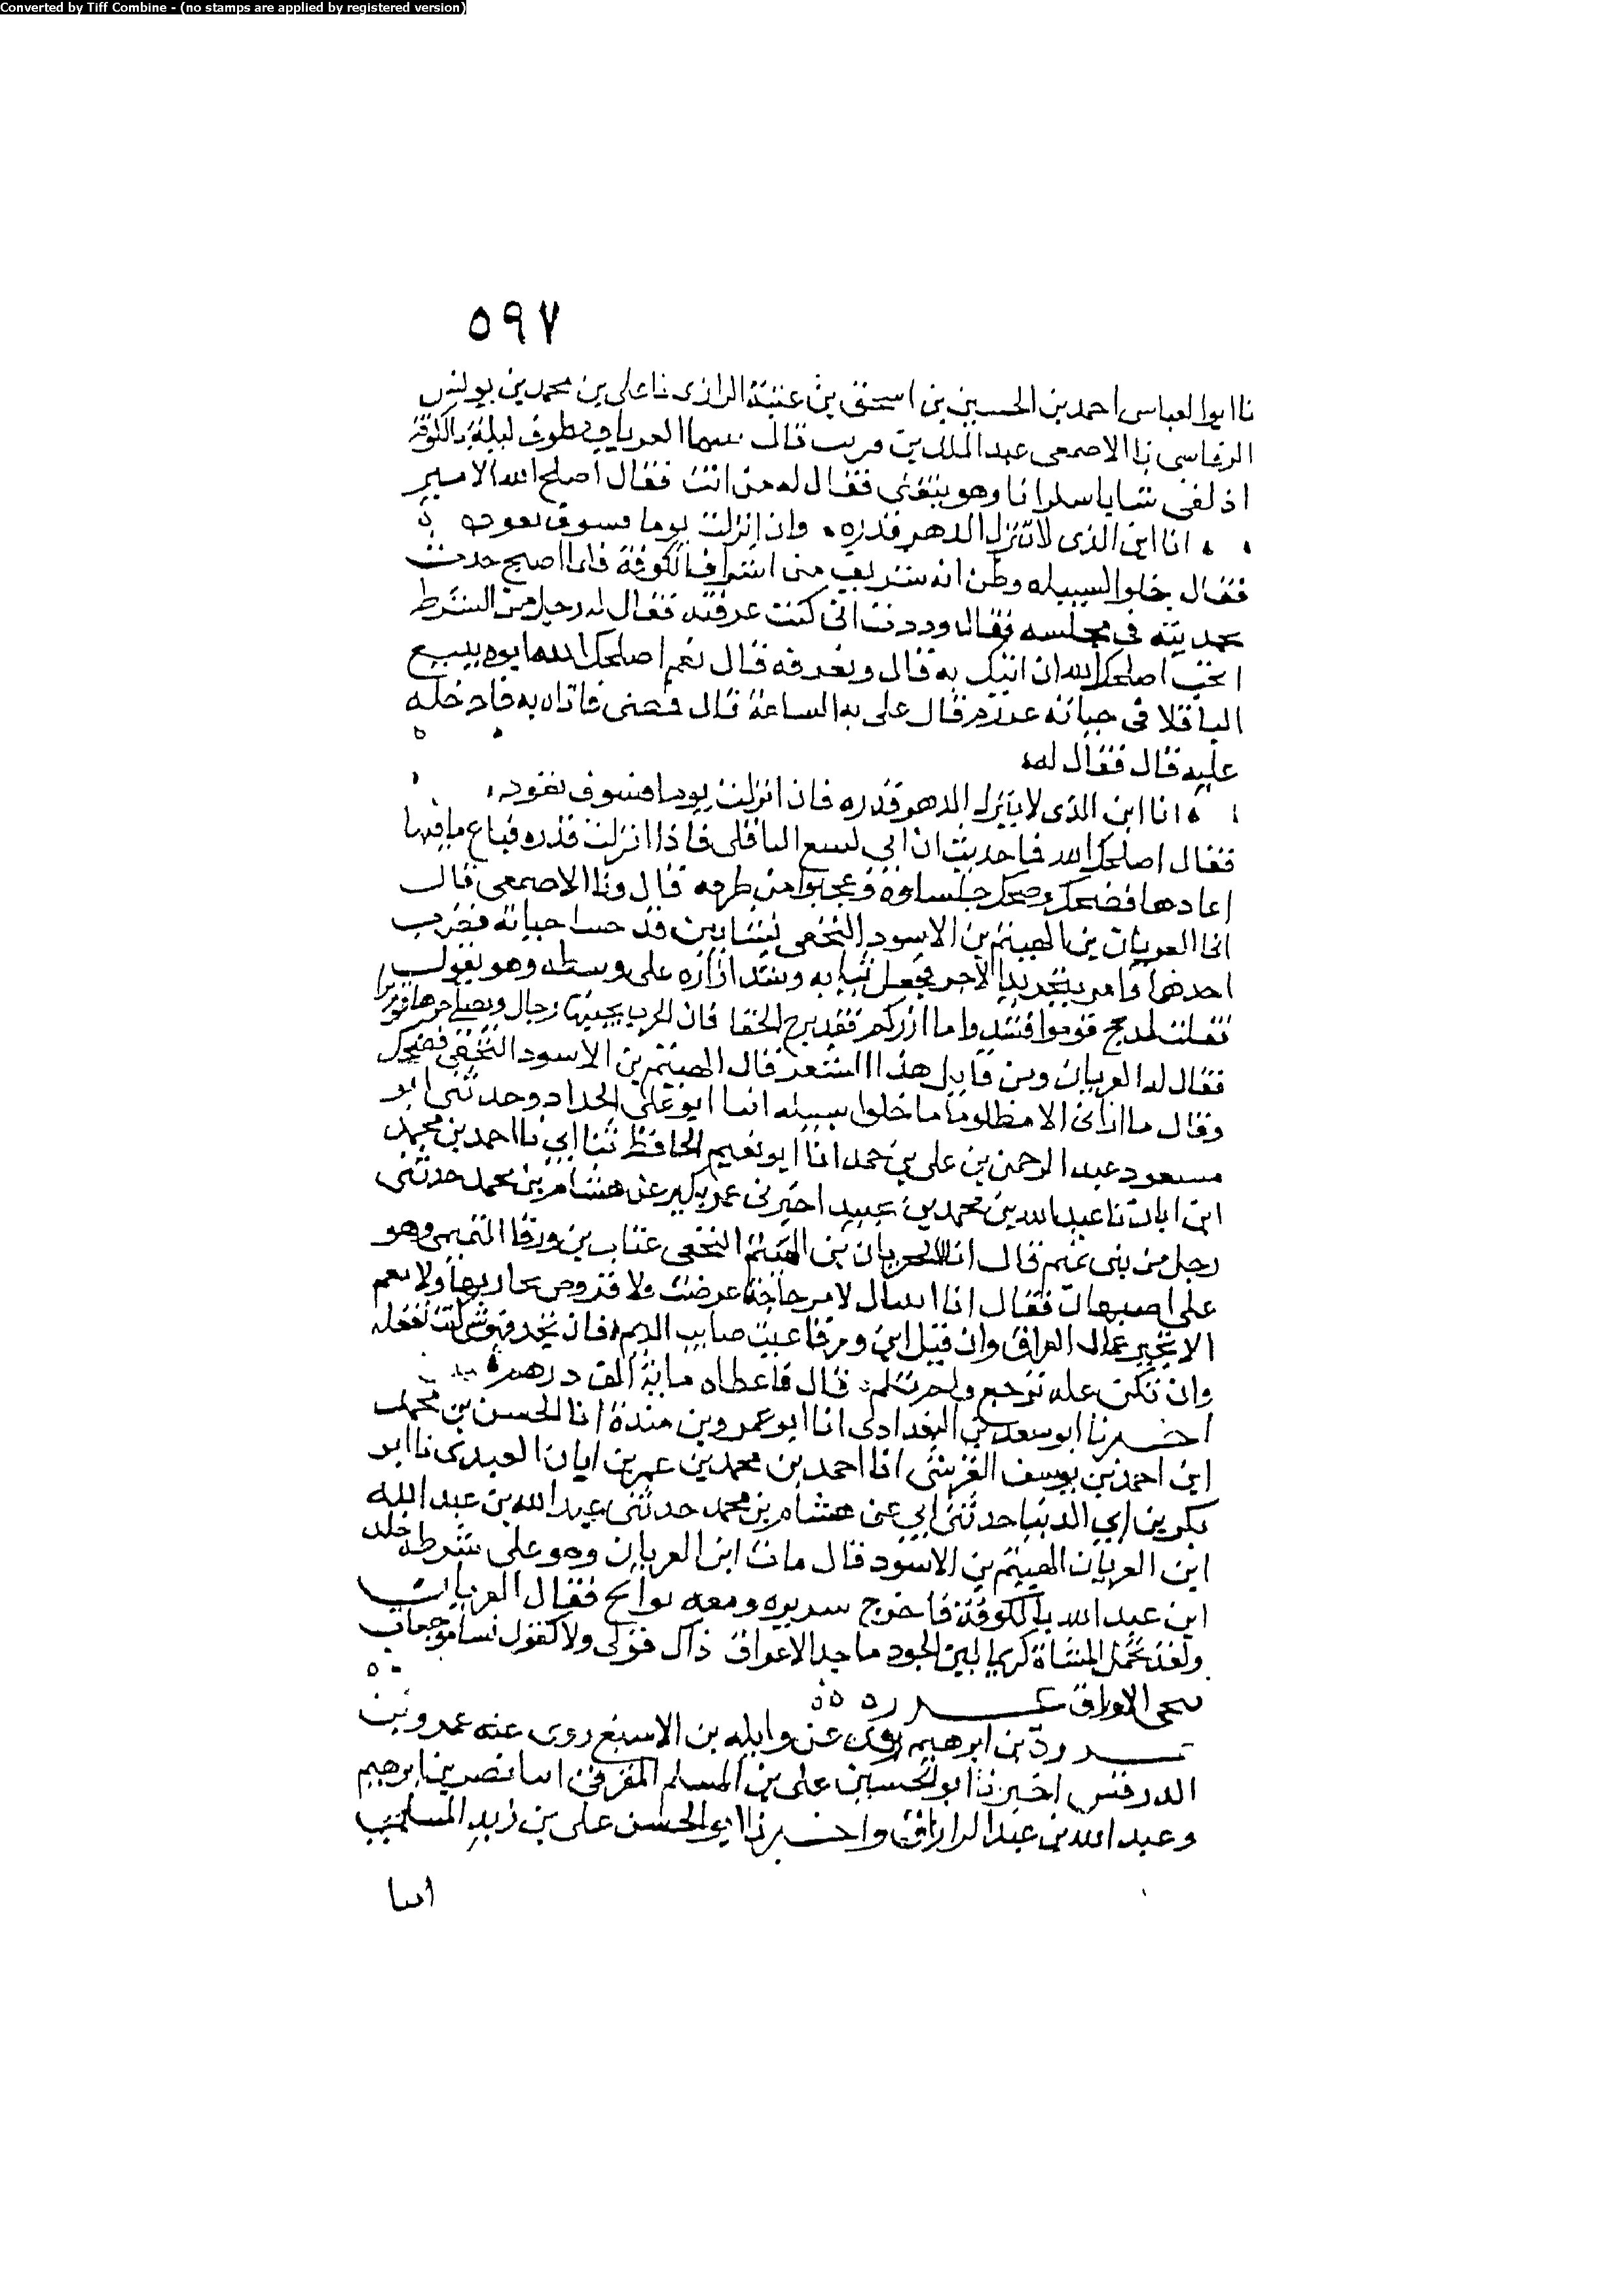 Converted by Tiff Combine - (no stamps are applied by registered version)
٥٩٧
نا ابوالعباس احمد بن الحسين بن اسحق بن عتبة الرازى نا على بن محمد بن يونس
الرقاسى نا الاصمعى عبد الملك بن قريب قال بينما العريان يطوف ليلة بالكوفة
اذ لقى شابا سكرانا وهو يتغنى فقال له من انت فقال اصلح الله الامير
انا ابن الذى لا تنزل الدهر قدره وان انزلت يوما فسوف تعود
فقال خلوا سبيله وظن انه شريف من اشراف الكوفة فلما اصبح حدث
بحديثه فى مجلسه فقال وددت انى كنت عرفته فقال له رجل من الشرط
اتحب اصلحك الله ان اتيك به قال وتعرفه قال نعم اصلحك الله ابوه يبيع
الباقلا فى جبانه عرزم قال على به الساعة قال فمضى فاتاه به فادخله
عليه قال فقال له
انا ابن الذى لا ينزل الدهر قدره فان انزلت يوما فسوف تعود
فقال اصلحك الله ان ابى يبيع الباقلى فاذا انزلت قدره فباع ما فيها
اعادها فضحك وضحك جلساوه وعجبوا من ظرفه قال ونا الاصمعى قال
اتى العريان بن الهيثم بن الاسود النخعى بشابين قد جنيا جنايه فضرب
احدهما وامر بتجريد الاخر فجعل ثيابه وشد ازاره على وسطه وهو يقول
فقلت لمدحج قوموا فشدوا ما ازركم فقد برح الخفا فان الحرب يجنيها رجال ويصلى حرها قوم برا
فقال له العريان ومن قايل هذا الشعر قال الهيثم بن الاسود النخعى فضحك
وقال ما ارانى الا مظلوما خلوا سبيله انبا ابو على الحداد وحدثنى ابو
مسعود عبد الرحمن بن على بن حمد انا ابو نعيم الحافظ ثنا ابى نا احمد بن محمد
ابن ابان نا عبد الله بن محمد بن عبيد اخبرنى عمر بن بكير عن هشام بن محمد حدثنى
رجل من بنى تميم قال اتى العريان بن الهيثم النخعى عتاب بن ورقا التميمى وهو
على اصبهان فقال انا اسال لا من حاجة عرضت ولا قروض نجازيها ولا نعم
الا تخير عمال العراق وان قيل ابن ورقا عبث صايب الديم فان تجد فهو شى كنت تفعله
وان تكن عله نرجع ولم نلم قال فاعطاه ماية الف درهم
اخبرنا ابو سعد بن البغدادى انا ابو عمرو بن مندة انا الحسن بن محمد
ابن احمد بن يوسف القرشى انا احمد بن محمد بن عمر بن ابان العبدى نا ابو
بكر بن ابى الدنيا حدثنى ابى عن هشام بن محمد حدثنى عبد الله بن عبد الله
ابن العريان الهيثم بن الاسود قال مات ابن العريان وهو على شرطه خلد
ابن عبد الله بالكوفة فاخرج سريره ومعه نوايح فقال العريان
ولقد تحمل المشاة كريما لين الجود ماجد الاعراق ذاك قولى ولا كقول نسا موجعات
ابن ابرهيم روى عن واثله بن الاسقع روى عنه عمرو بن
الدرفس اخبرنا ابو الحسين على بن المسلم الفرضى انبا نصر بن ابرهيم
وعبد الله بن عبد الرازق واخبرنا ابو الحسن على بن زيد المسلمى
انبا